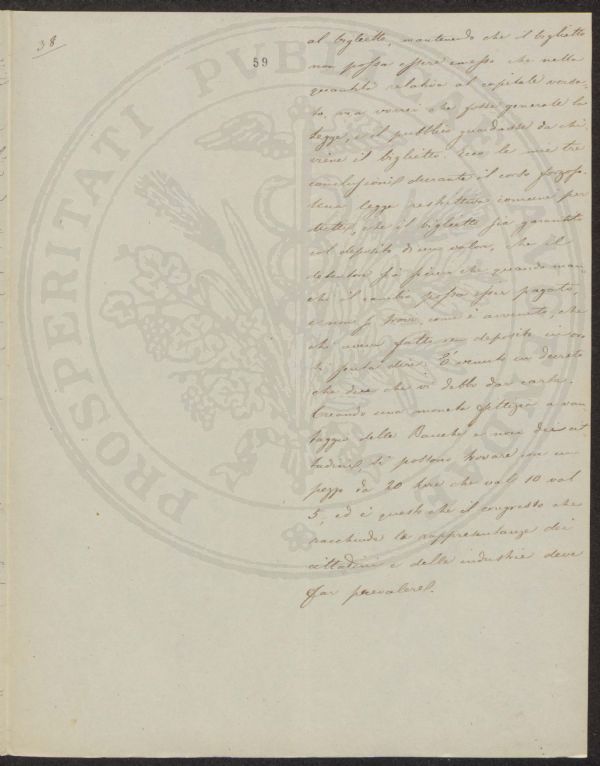 38
59
al biglietto, mantenendo che il biglietto
non possa essere emesso che nella
quantità relativa al capitale versa-
to, ma vorrei che fosse generale la
legge, e il pubblico guardasse da chi
viene il biglietto. Ecco le mie tre
conclusioni durante il corso forzoso
una legge restrittiva comune per
tutti, che il biglietto sia garantito
col deposito di un valore, che il
detentore sia sicuro che quando man-
chi il cambio possa essere pagato,
e non si trovi, come è avvenuto, che
chi aveva fatto un deposito in oro
È venuto un decreto
che dice che vi debbo dar carta.
Creando una moneta fittizia a van-
taggio delle Banche e non dei cit-
tadini, si possono trovare con un
pezzo da 20 lire che vale 10 val
5, ed è questo che il congresso che
racchiude la rappresentanza dei
cittadini e delle industrie deve
far prevalere.
PROSPERITATI PVBLICAE